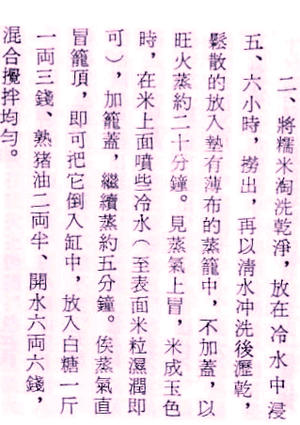 二、將糯米淘洗乾淨，放在冷水中浸
五、六小時，撈出，再以清水冲洗後瀝乾，
鬆散的放入墊有薄布的蒸籠中，不加蓋，以
旺火蒸約二十分鐘。見蒸氣上冒，米成玉色
時，在米上面噴些冷水（至表面米粒濕潤即
可），加籠蓋，繼續蒸約五分鐘。俟蒸氣直
冒籠頂，即可把它倒入缸中，放入白糖一斤
一兩三錢、熟猪油二兩半、開水六兩六錢，
混合攪拌均勻。